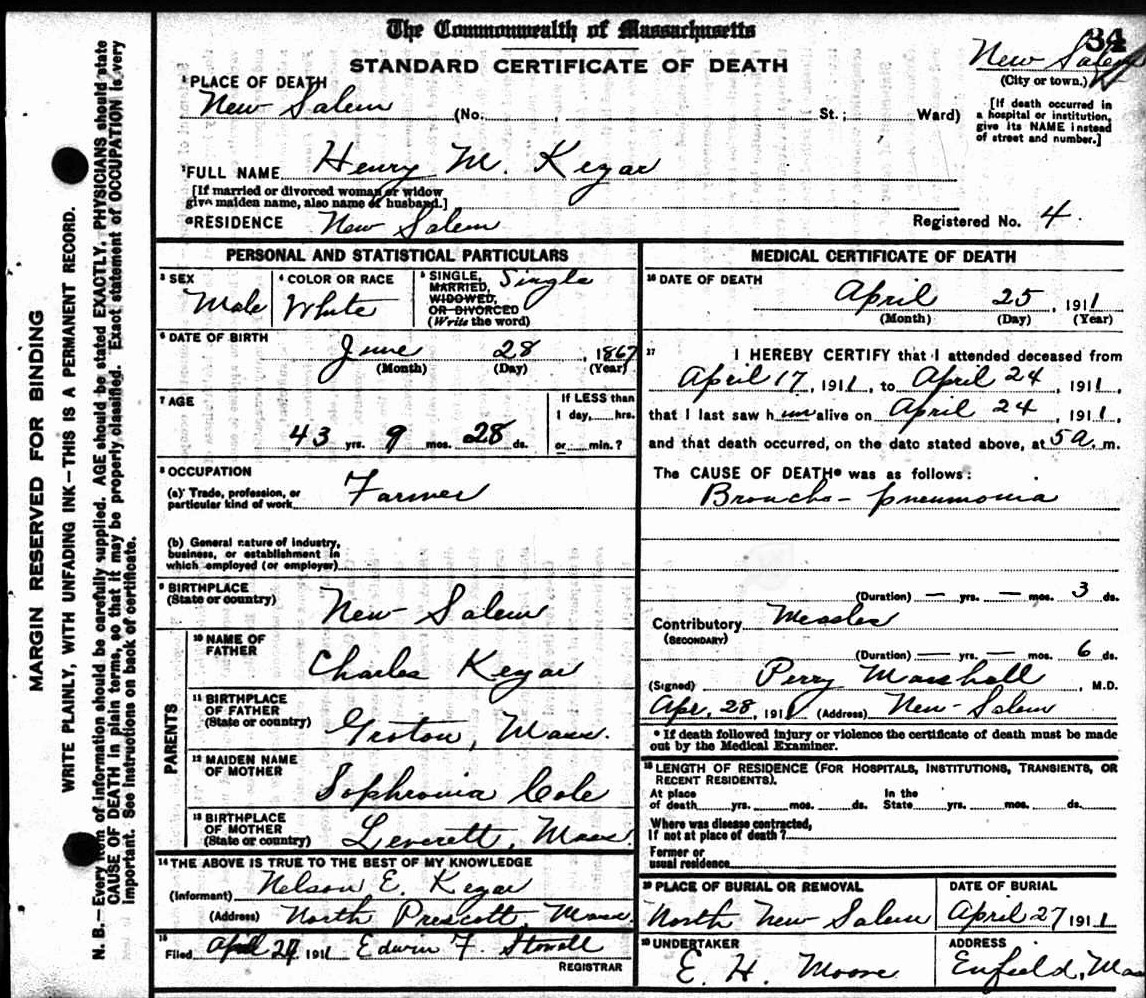 The Commonwealth of Massachusetts
34
STANDARD CERTIFICATE OF DEATH
New Salem
(City or town.)
¹PLACE OF DEATH
New Salem (No. , St.; Ward)
[If death occurred in
a hospital or institution,
give its NAME instead
of street and number.]
²FULL NAME Henry M. Kegar
[If married or divorced woman or widow
give maiden name, also name of husband.]
RESIDENCE New Salem
Registered No. 4.
PERSONAL AND STATISTICAL PARTICULARS
³ SEX
Male
⁴ COLOR OR RACE
White
⁵ SINGLE, Single
MARRIED,
WIDOWED,
OR DIVORCED
(Write the word)
⁶ DATE OF BIRTH
June 28, 1867
(Month) (Day) (Year)
⁷ AGE
43 yrs. 9 mos. 28 ds.
If LESS than
1 day, hrs.
or min.?
⁸ OCCUPATION
(a) Trade, profession, or
particular kind of work Farmer
(b) General nature of industry,
business, or establishment in
which employed (or employer)
⁹ BIRTHPLACE
(State or country) New Salem
PARENTS
¹⁰ NAME OF
FATHER Charles Kegar
¹¹ BIRTHPLACE
OF FATHER
(State or country) Groton, Mass.
¹² MAIDEN NAME
OF MOTHER Sophronia Cole
¹³ BIRTHPLACE
OF MOTHER
(State or country) Leverett, Mass.
¹⁴ THE ABOVE IS TRUE TO THE BEST OF MY KNOWLEDGE
(Informant) Nelson E. Kegar
(Address) North Prescott, Mass.
¹⁵ Filed April 29 1911 Edwin F. Stowell
REGISTRAR
MEDICAL CERTIFICATE OF DEATH
¹⁶ DATE OF DEATH
April 25, 1911
(Month) (Day) (Year)
¹⁷ I HEREBY CERTIFY that I attended deceased from
April 17, 1911, to April 24, 1911,
that I last saw him alive on April 24, 1911,
and that death occurred, on the date stated above, at 5 a. m.
The CAUSE OF DEATH* was as follows:
Broncho-pneumonia
(Duration) — yrs. — mos. 3 ds.
Contributory Measles
(SECONDARY)
(Duration) — yrs. — mos. 6 ds.
(Signed) Perry Marshall, M.D.
Apr. 28, 1911 (Address) New-Salem
* If death followed injury or violence the certificate of death must be made
out by the Medical Examiner.
¹⁸ LENGTH OF RESIDENCE (FOR HOSPITALS, INSTITUTIONS, TRANSIENTS, OR
RECENT RESIDENTS).
At place In the
of death yrs. mos. ds. State yrs. mos. ds.
Where was disease contracted,
If not at place of death?
Former or
usual residence
¹⁹ PLACE OF BURIAL OR REMOVAL
North New Salem
DATE OF BURIAL
April 27 1911
²⁰ UNDERTAKER
E. H. Moore
ADDRESS
Enfield, Mass
MARGIN RESERVED FOR BINDING
WRITE PLAINLY, WITH UNFADING INK—THIS IS A PERMANENT RECORD.
N. B.—Every item of information should be carefully supplied. AGE should be stated EXACTLY. PHYSICIANS should state
CAUSE OF DEATH in plain terms, so that it may be properly classified. Exact statement of OCCUPATION is very
important. See instructions on back of certificate.